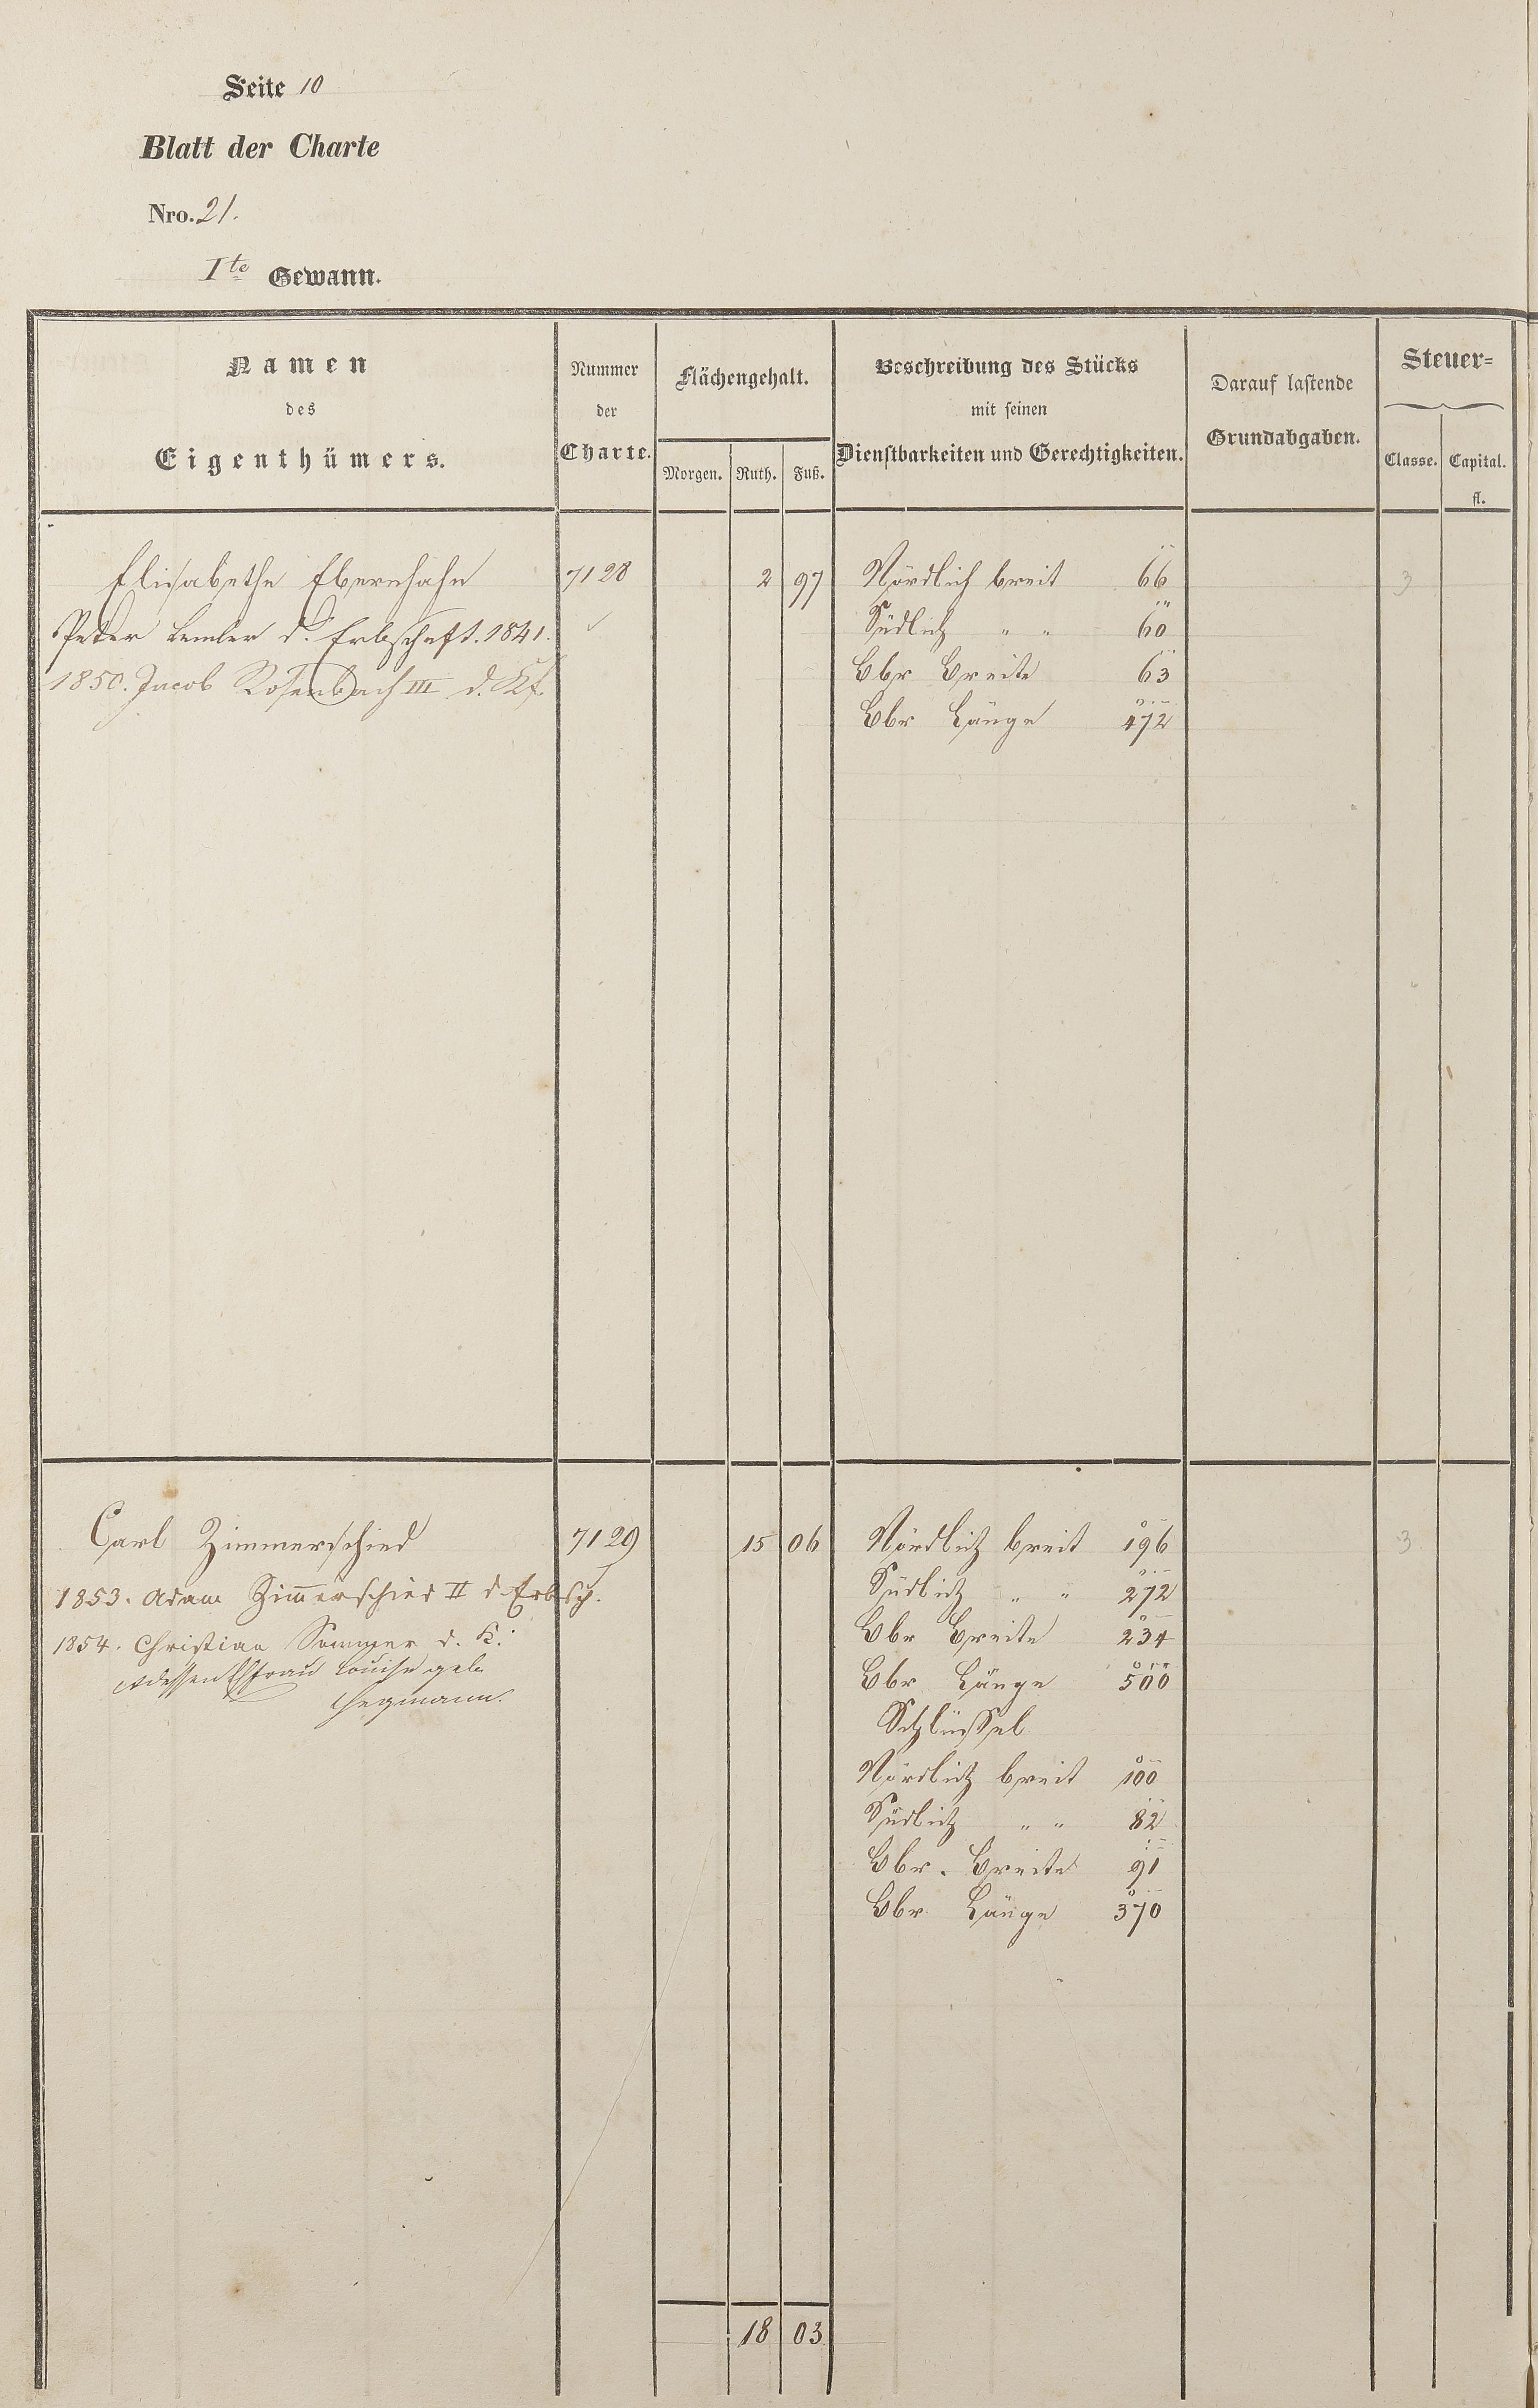 Seite 10
Blatt der Charte
Nro. 21.
I te Gewann.
Namen
des
Eigenthümers.
Nummer
der
Charte.
Flächengehalt.
Morgen. Ruth. Fuß.
Beschreibung des Stücks
mit seinen
Dienstbarkeiten und Gerechtigkeiten.
Darauf lastende
Grundabgaben.
Steuer=
Classe. Capital.
fl.
Elisabethe Ebernhahn 7128 2 97 Nördlich breit 66 3
Peter Lemler d. Erbschaft. 1841. Südlich " " 60
1850. Jacob Rosenbach III d. Kf. Obr Breite 63
Obr Länge 472
Carl Zimmerschied 7129 15 06 Nördlich breit 196 3
1853. Adam Zim̅erschied II d Erbsch. Südlich " " 272
1854. Christian Sommer d. K. Obr Breite 234
dessen Ehfrau Louise geb. Obr Länge 500
Hegmann.
Schlüssel
Nördlich breit 100
Südlich " " 82
Obr. Breite 91
Obr Länge 370
18 03